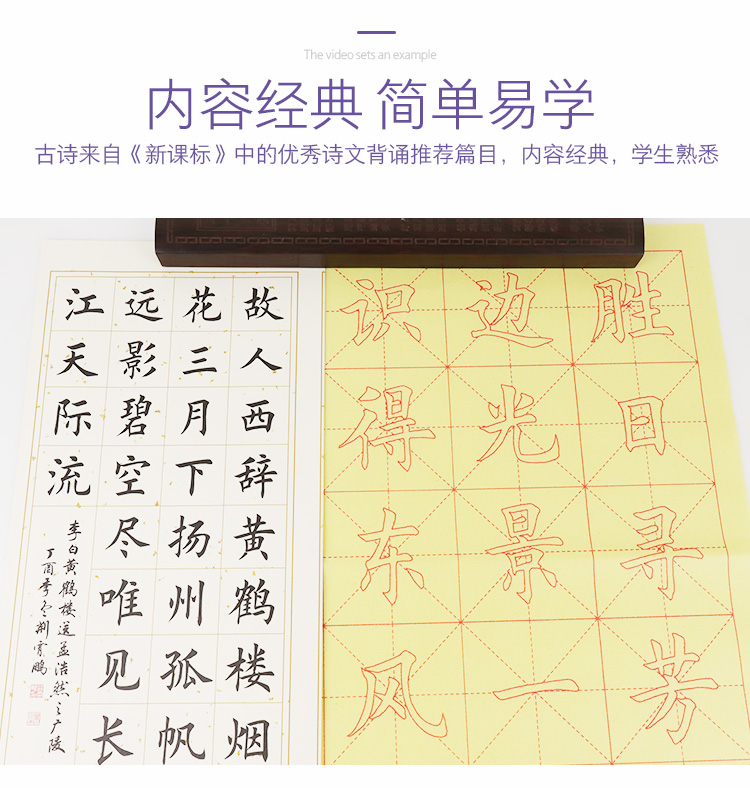 The video sets an example
内容经典 简单易学
古诗来自《新课标》中的优秀诗文背诵推荐篇目，内容经典，学生熟悉
故人西辞黄鹤楼烟
花三月下扬州孤帆
远影碧空尽唯见长
江天际流
李白黄鹤楼送孟浩然之广陵
丁酉季冬荆霄鹏
胜日寻芳
边光景一
识得东风